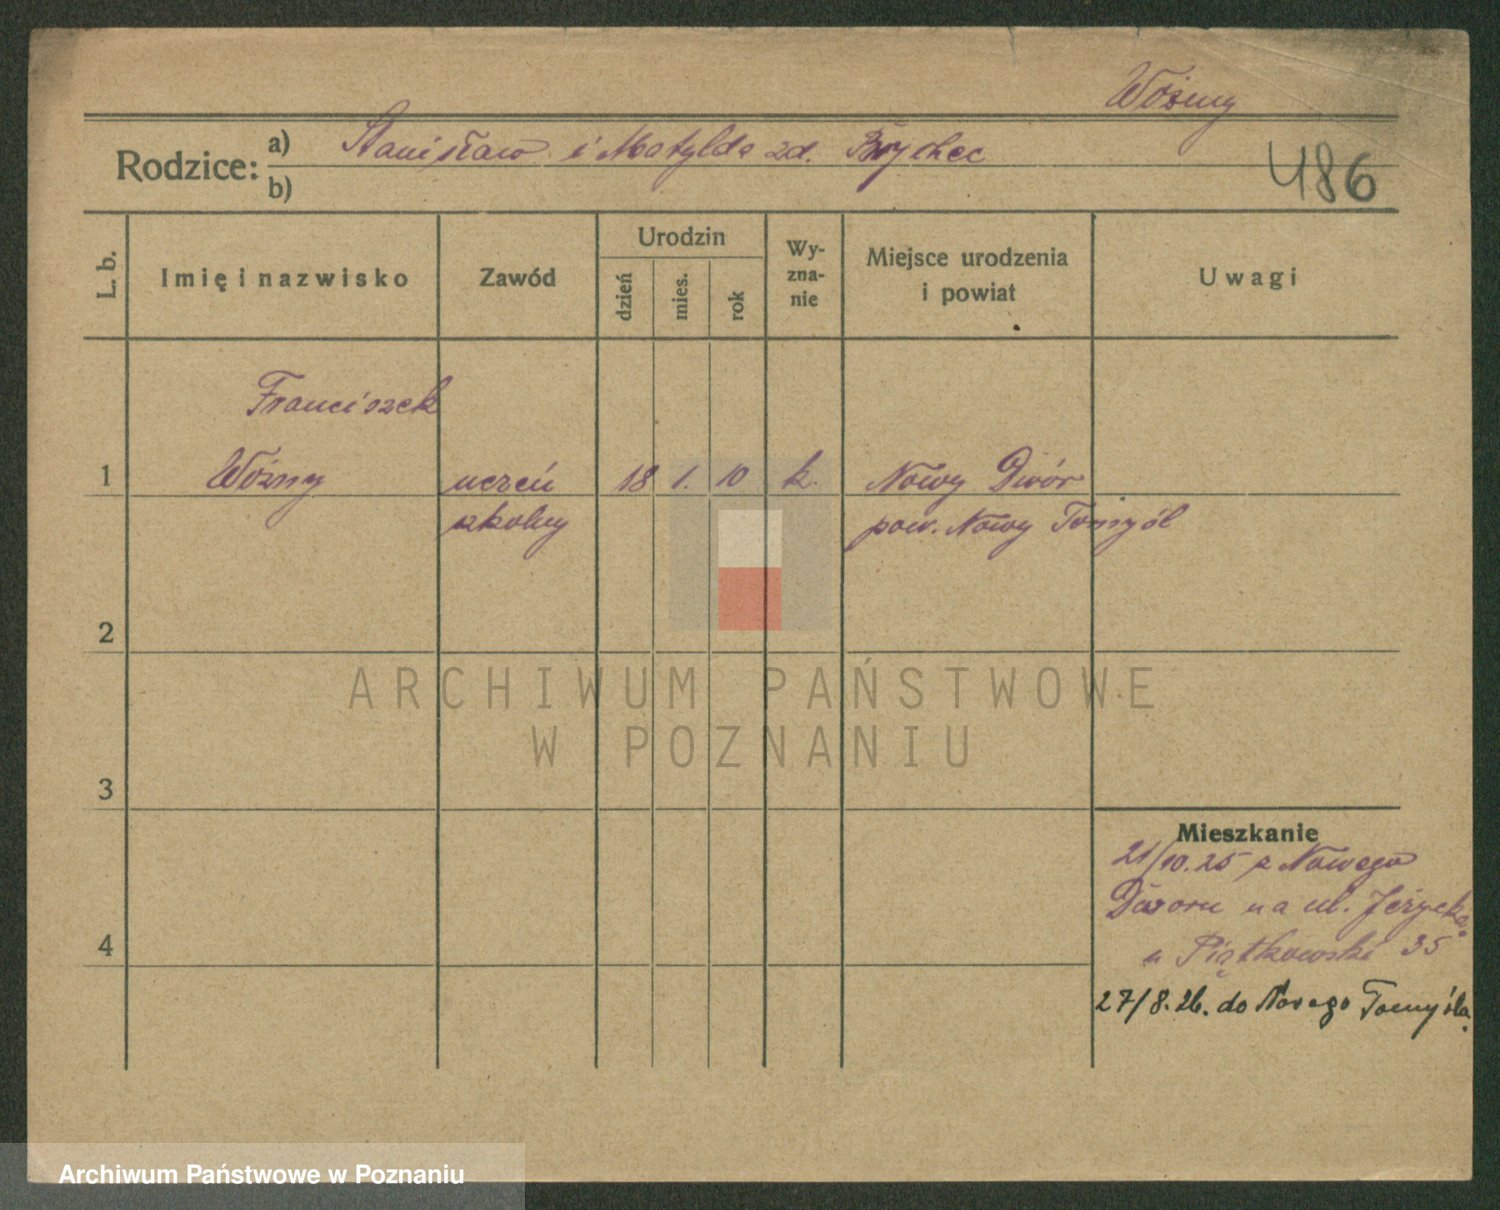 Woźny
Rodzice: a) Stanisław i Matylda zd. Brychcc
b)
486
L. b.
Imię i nazwisko
Zawód
Urodzin
dzień
mies.
rok
Wy-
zna-
nie
Miejsce urodzenia
i powiat
Uwagi
Franciszek
1 Woźny uczeń 18 1. 10 k. Nowy Dwór
szkolny pow. Nowy Tomyśl
2
3
4
Mieszkanie
21/10.25 z Nowego
Dworu na ul. Jeżycka
u Piątkowski 35
27/8.26. do Nowego Tomyśla.
ARCHIWUM PAŃSTWOWE
W POZNANIU
Archiwum Państwowe w Poznaniu